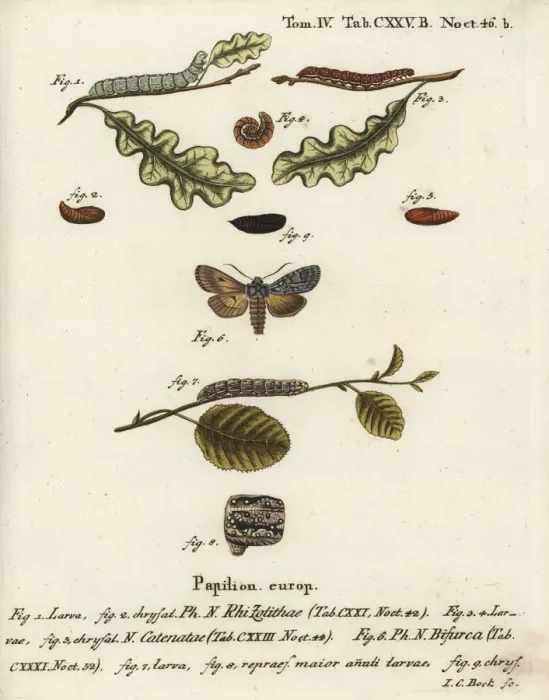 Tom. IV. Tab. CXXV. B. Noct. 46. b.
Fig. 1.
Fig. 3.
Fig. 4.
fig. 2.
fig. 5.
fig. 9.
Fig. 6.
fig. 7.
fig. 8.
Papilion. europ.
Fig. 1. Larva, fig. 2, chrysal. Ph. N. Rhizolithae (Tab. CXXI, Noct. 42). Fig. 3. 4. Lar-
vae, fig. 5, chrysal. N. Catenatae (Tab. CXXIII Noct. 44). Fig. 6. Ph. N. Bifurca (Tab.
CXXXI. Noct. 52), fig. 7, larva, fig. 8, repraes. maior anuli larvae, fig. 9, chrys.
I. C. Bock sc.